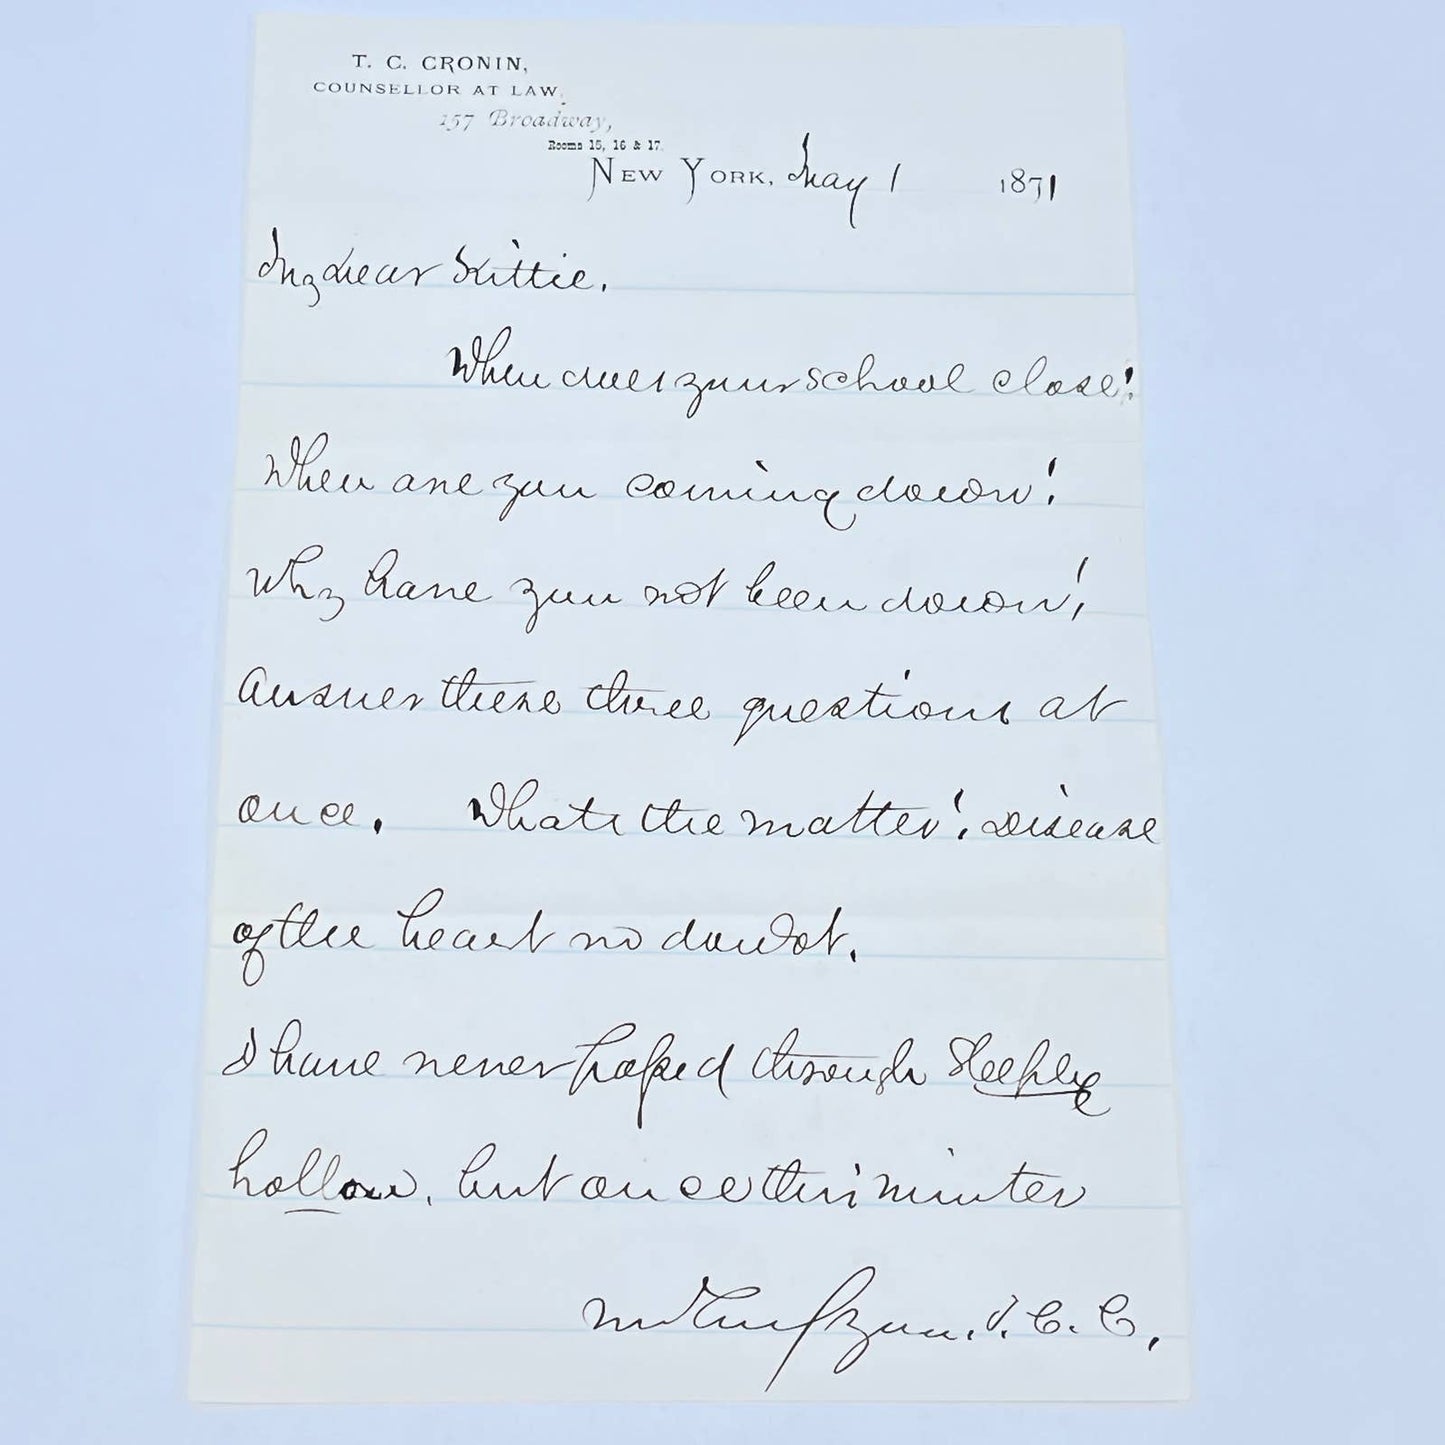 T. C. CRONIN,
COUNSELLOR AT LAW,
157 Broadway,
Rooms 15, 16 & 17.
NEW YORK, May 1 1871
My dear Kittie.
When does your school close?
When are you coming down?
Why have you not been down?
Answer these three questions at
once. Whats the matter? Disease
of the heart no doubt.
I have never passed through Sleepy
hollow, but once this winter
without you. T. C. C.